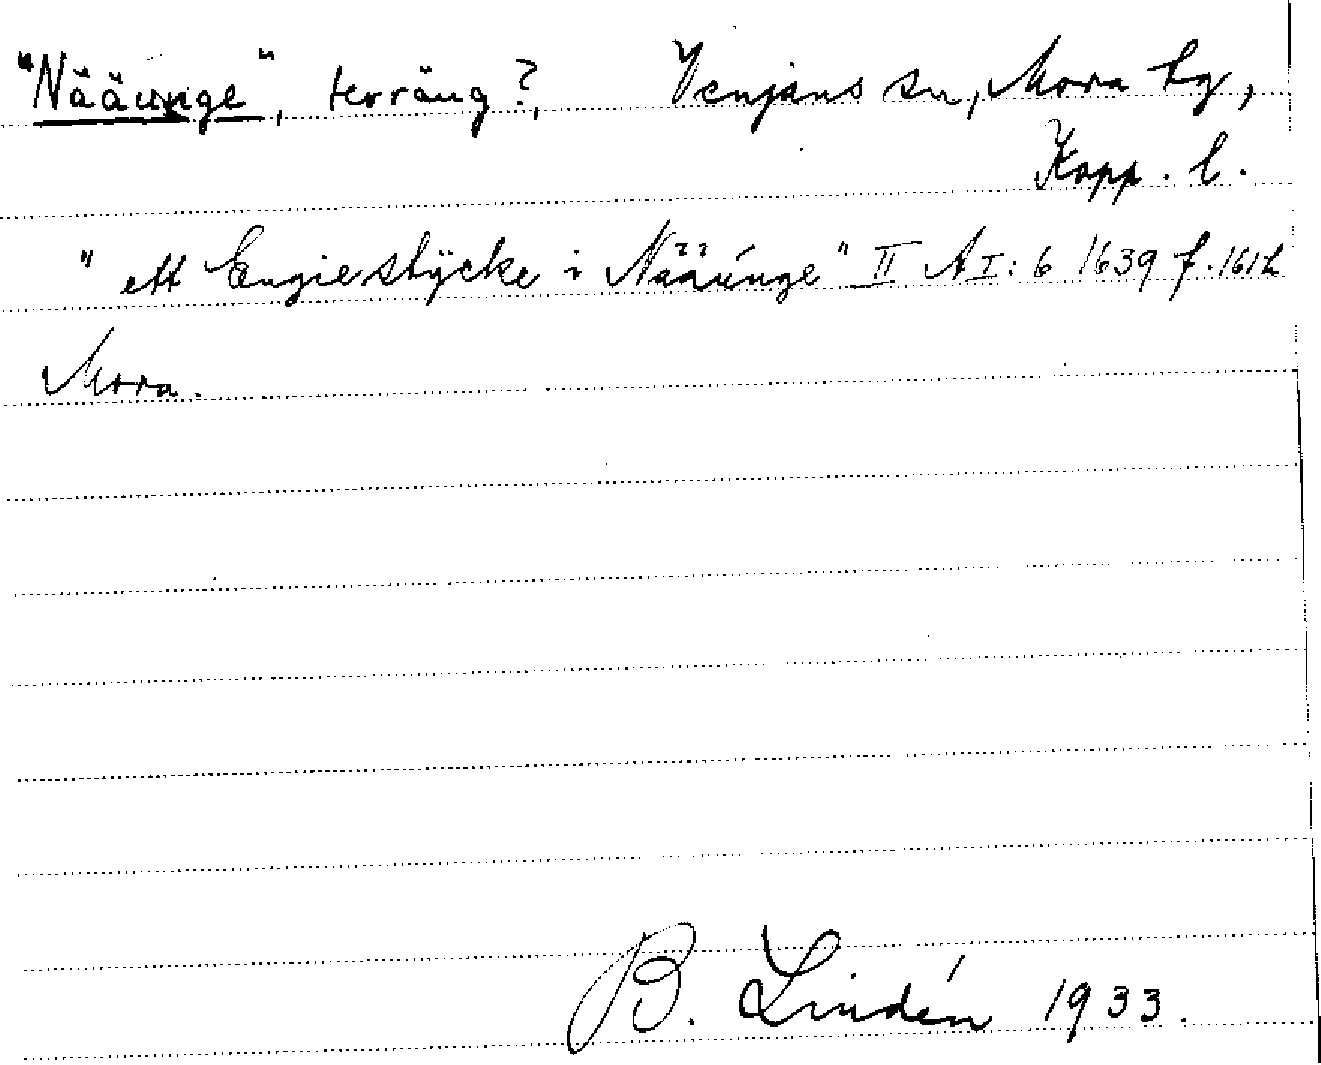 "Nääunge", terräng?, Venjans sn, Mora tg,
Kopp. l.
" ett Engiestÿcke i Nääúnge" II A I: 6 1639 f. 161 b
Mora.
B. Lindén 1933.